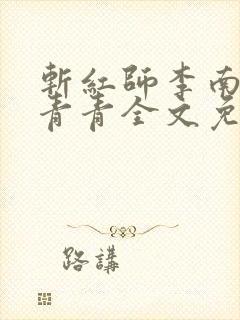 斬紅師李南
青青全文免
路講